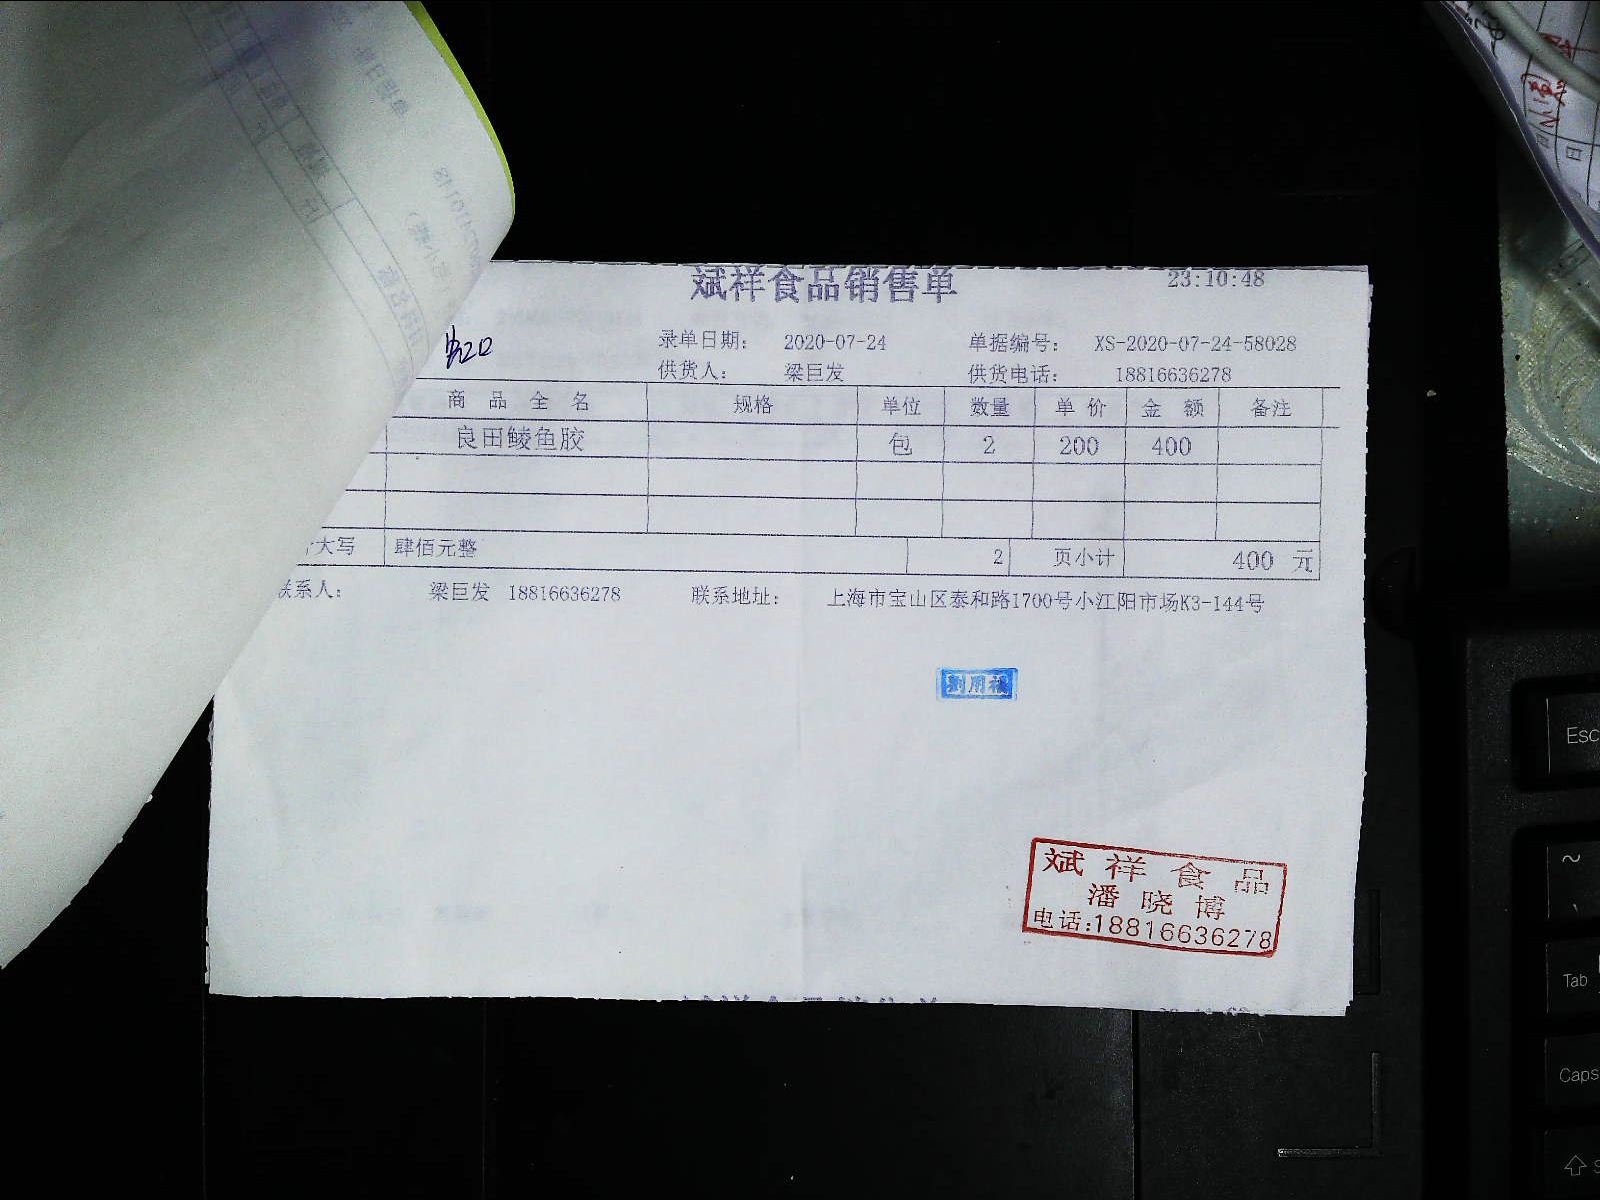 斌祥食品销售单 23:10:48
录单日期： 2020-07-24 单据编号： XS-2020-07-24-58028
供货人： 梁巨发 供货电话： 18816636278
商 品 全 名 规格 单位 数量 单 价 金 额 备注
良田鲮鱼胶 包 2 200 400
大写 肆佰元整 2 页小计 400 元
联系人： 梁巨发 18816636278 联系地址： 上海市宝山区泰和路1700号小江阳市场K3-144号
斌祥食品
潘晓博
电话:18816636278
Esc
~
Tab
Caps